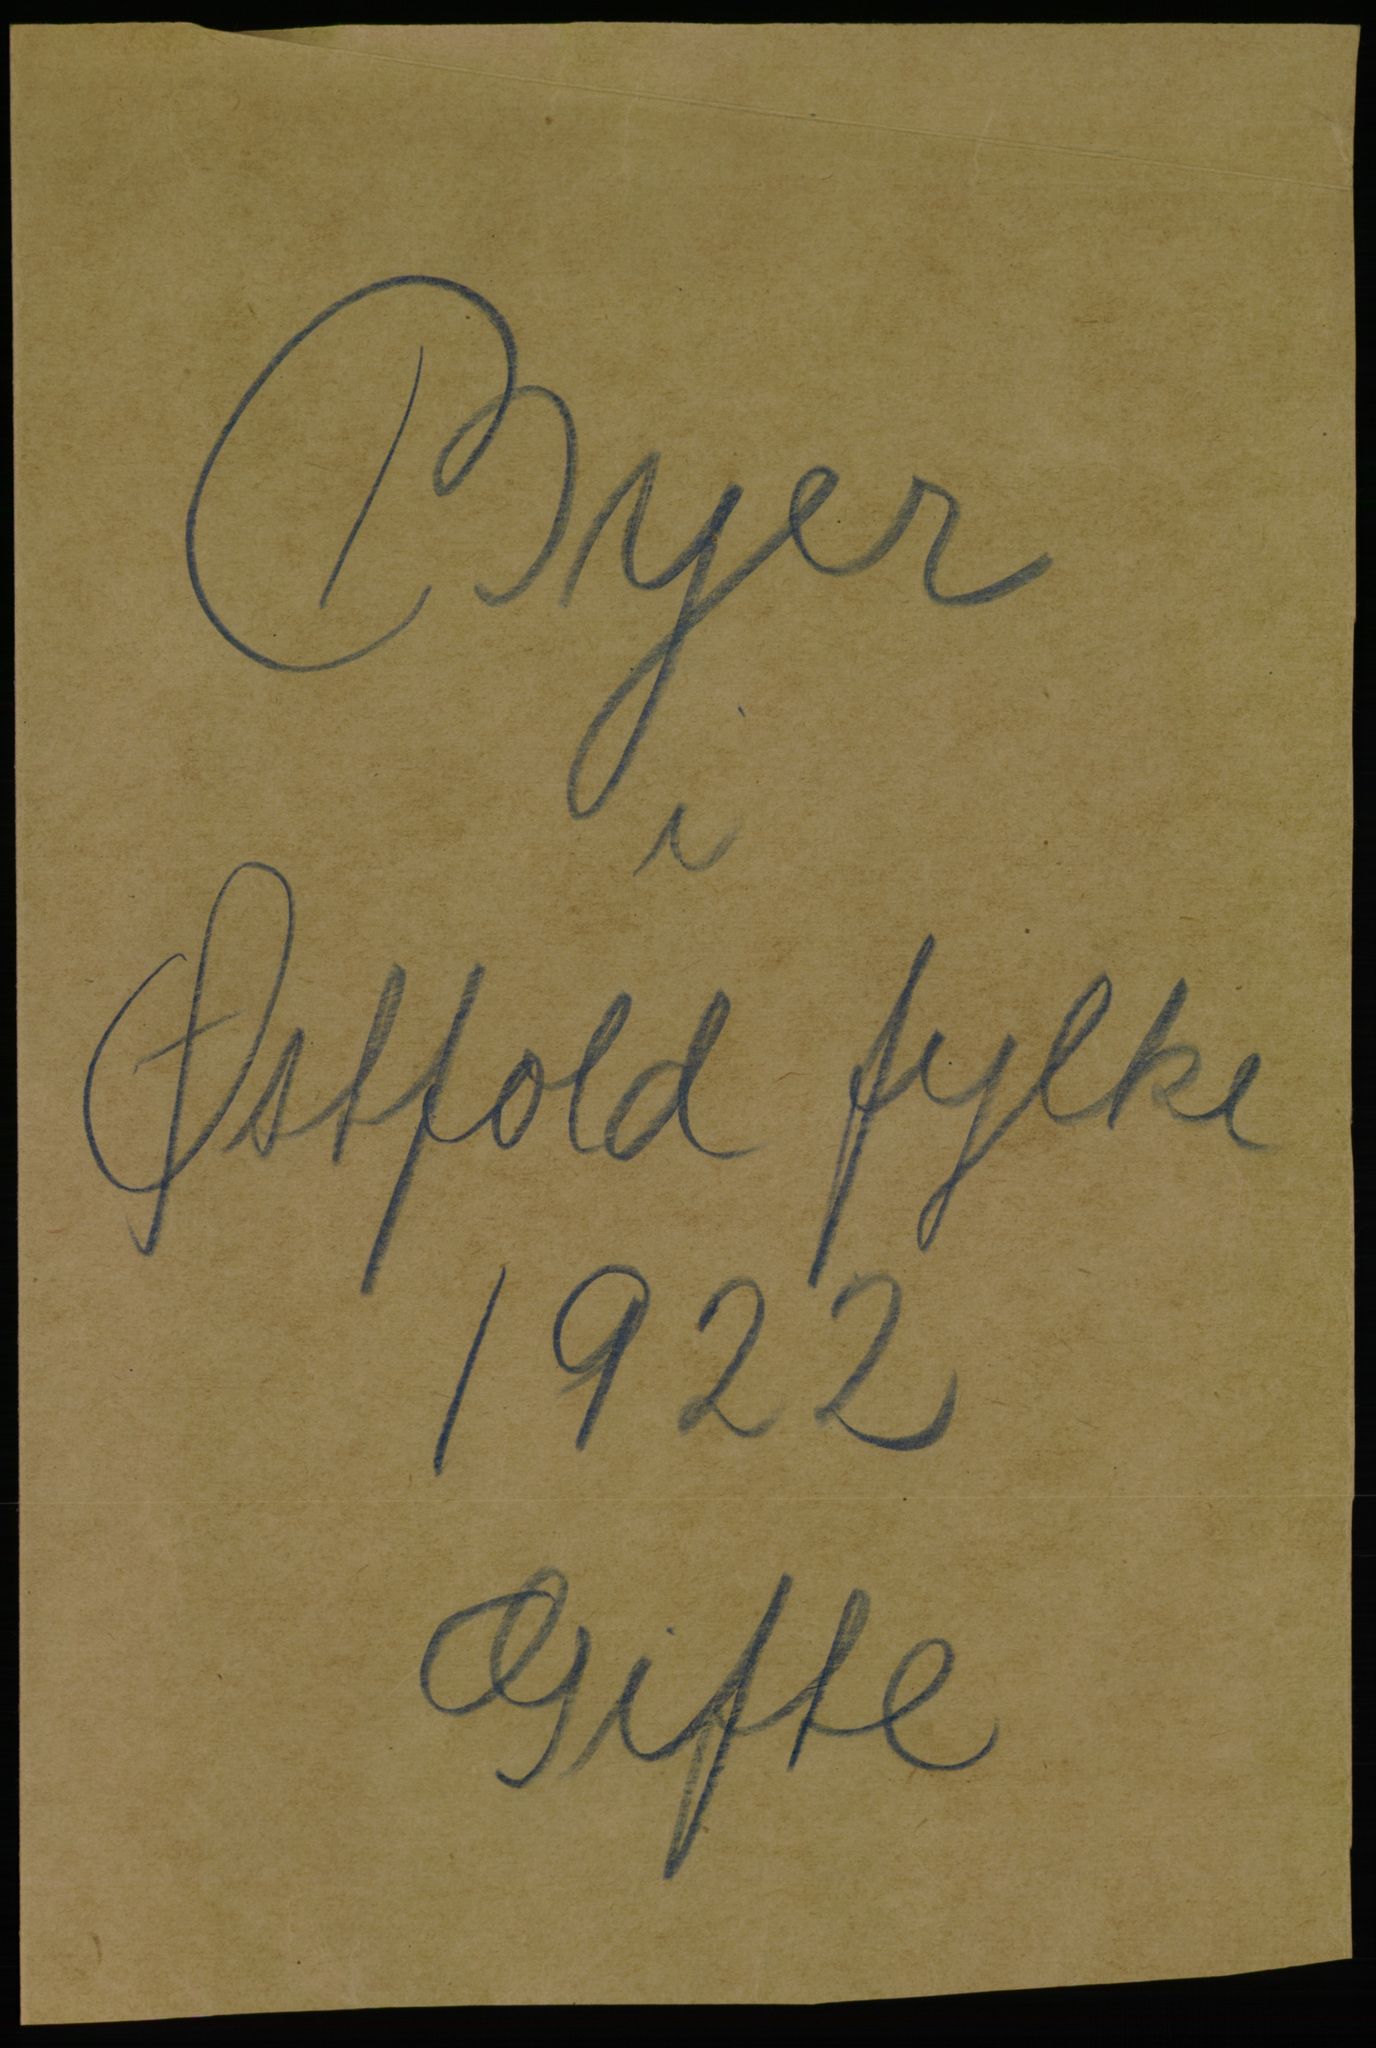 Byer
i
Østfold fylke
1922
Gifte